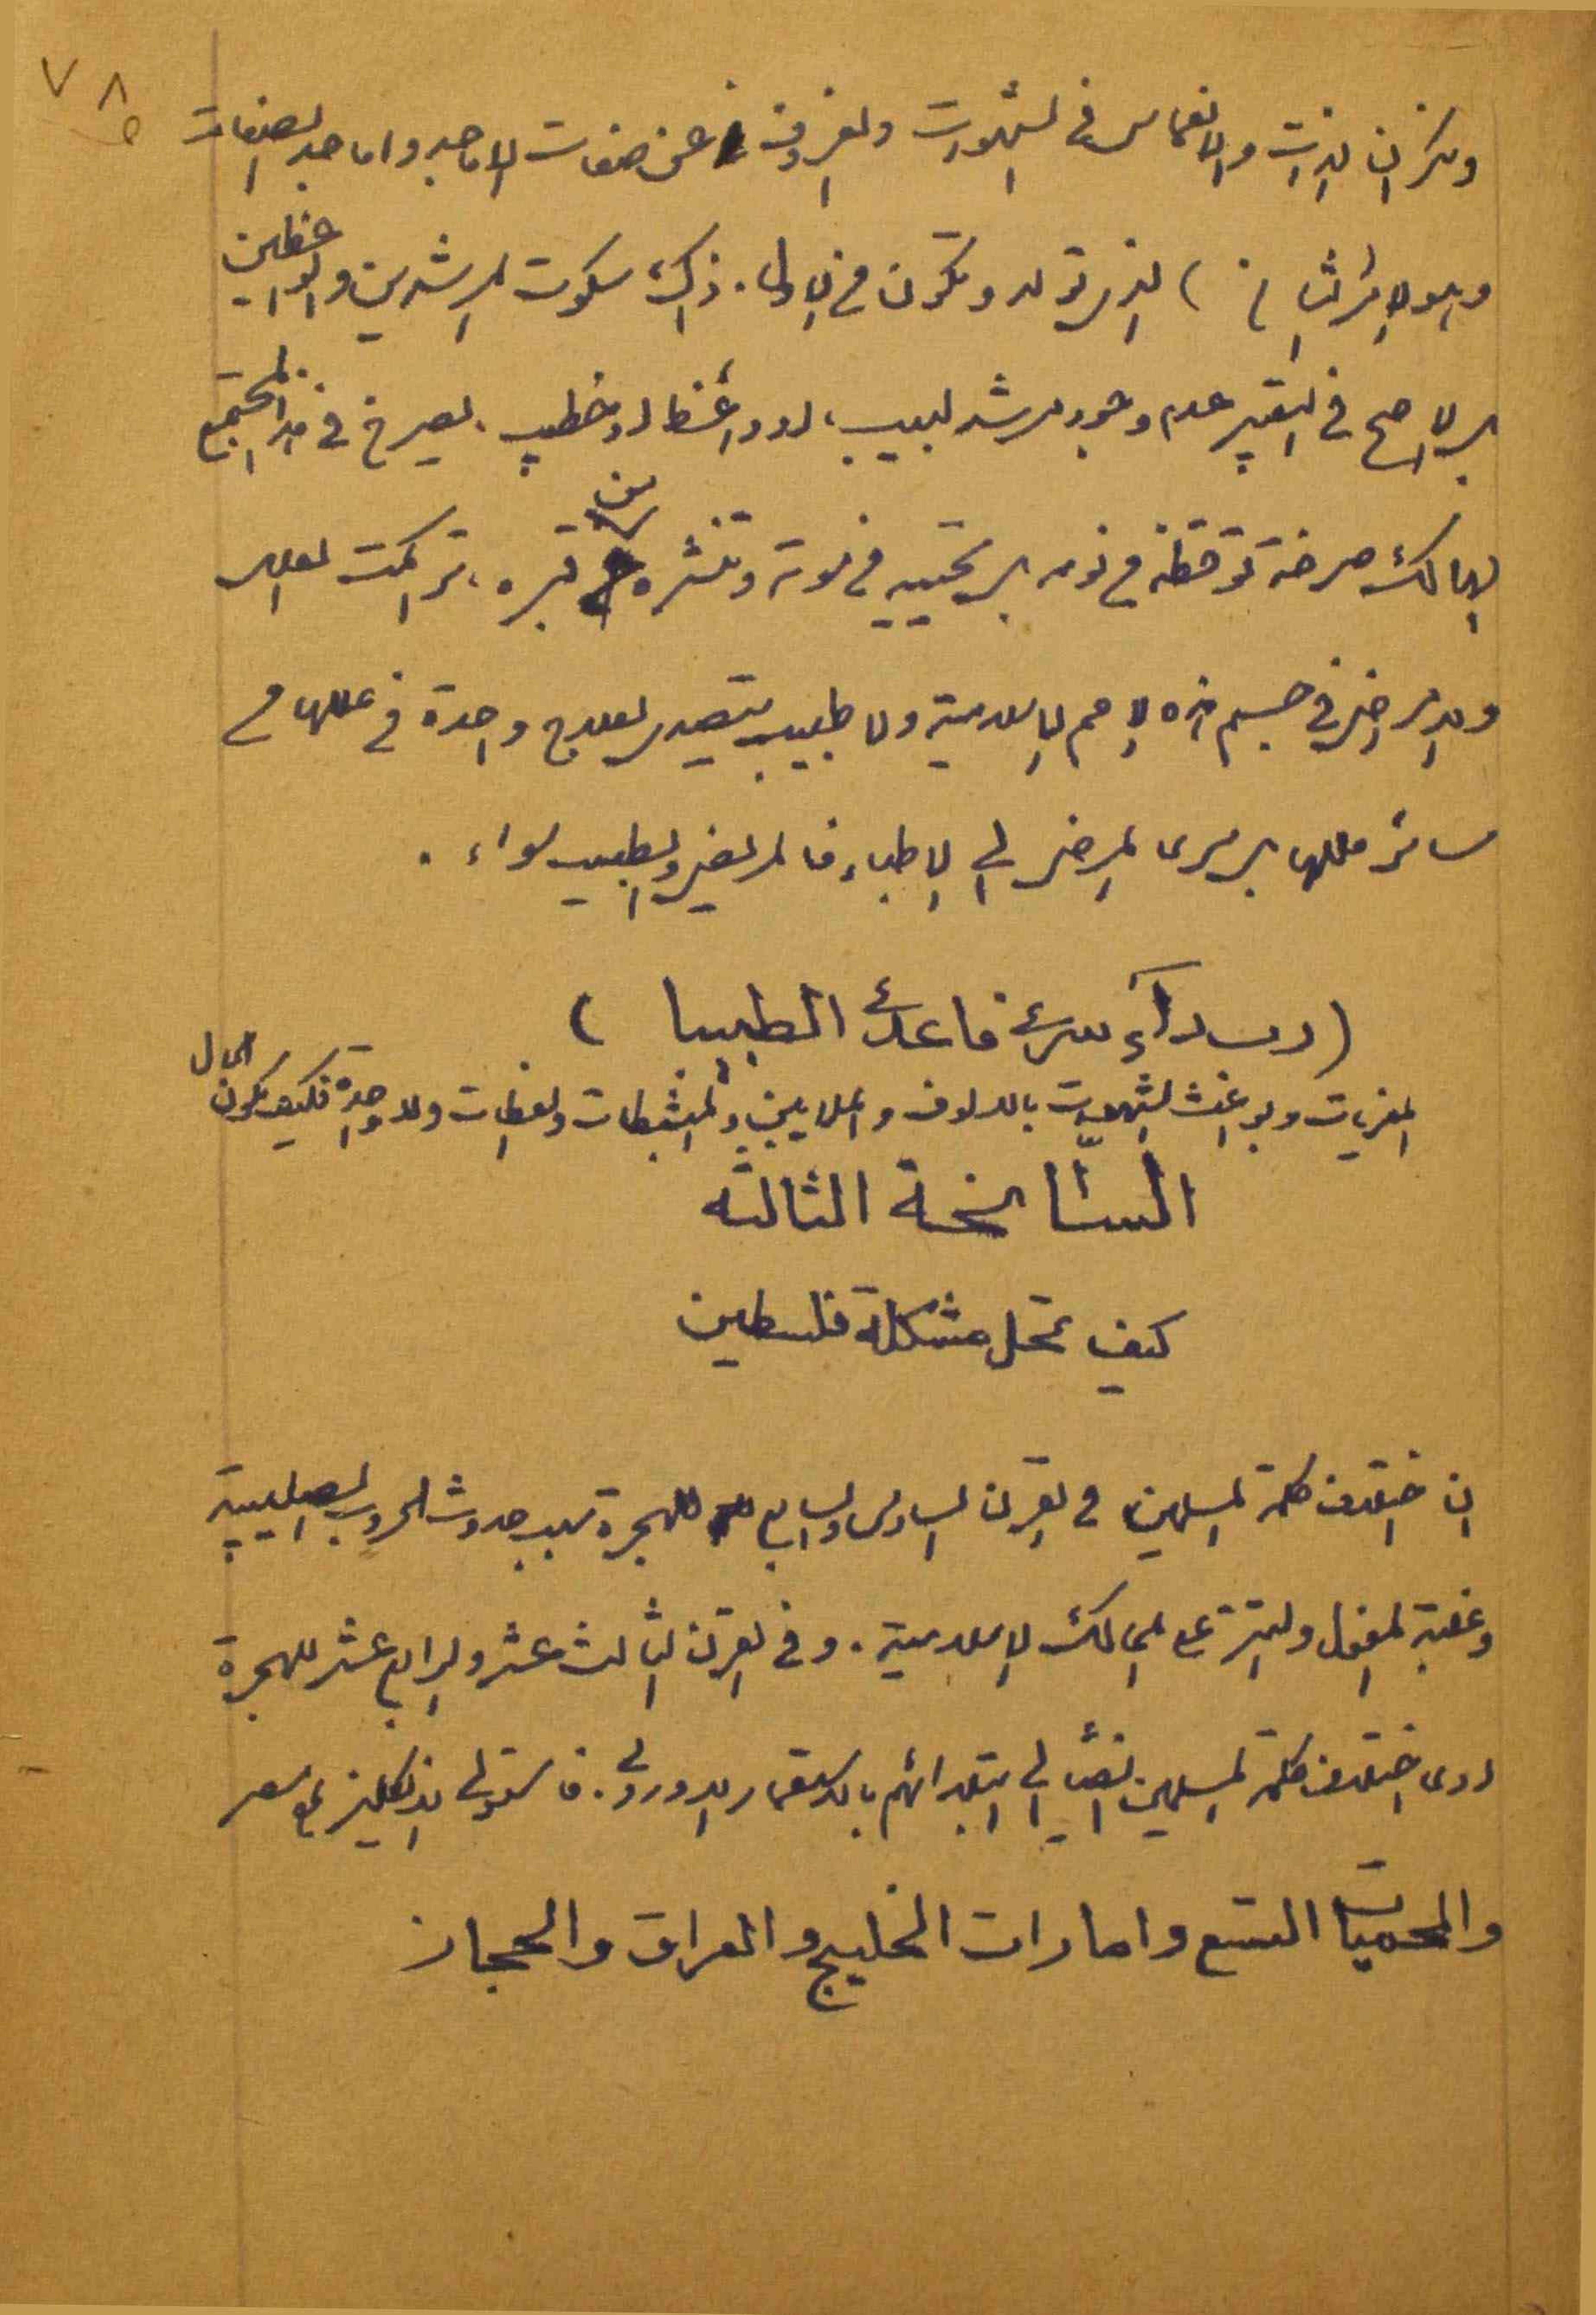 ٧٨
ونكران الذات والانغماس في الشهوات والعزوف عن صفات الاماجد واماجد الصفات
وهو الاثر الثاني) الذي تولد وتكون من الاول. ذاك سكوت المرشدين والواعظين
بل الاصح في التعبير عدم وجود مرشد لبيب، او واعظ او خطيب، يصرخ في هذا المجتمع
الهالك صرخة توقظه من نومه بل تحييه من موته وتنشره من قبره، تراكمت العلل
والامراض في جسم هذه الامم الاسلامية ولا طبيب يتصدى لعلاج واحدة من عللها من
سائر مللها بل سرى المرض الى الاطباء فالمريض والطبيب سواء.
(رب داء سرى فاعدى الطبيبا)
المغريات وبواعث الشهوات بالالوف والملايين والمثبطات والعظات ولا واحدة فكيف يكون الحال
السانحة الثالثه
كيف تحل مشكلة فلسطين
ان اختلاف كلمة المسلمين في القرن السادس والسابع للهجرة سبب حدوث الحروب الصليبية
وغلبة المغول والتتر على الممالك الاسلامية. وفي القرن الثالث عشر والرابع عشر للهجرة
ادى اختلاف كلمة المسلمين ايضاً الى ابتلائهم بالاستعمار الاوروبي. فاستولى الانكليز على مصر
والمحميات التسع وامارات الخليج والعراق والحجاز